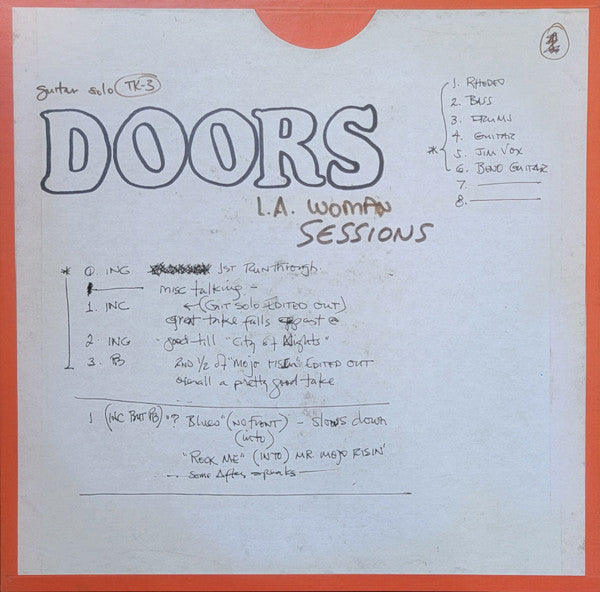 guitar solo TK-3
DOORS
L.A. WOMAN
SESSIONS
1. RHODES
2. BASS
3. DRUMS
4. GUITAR
* 5. JIM VOX
6. BEND GUITAR
7.
8.
* 0. INC 1ST RUNTHROUGH
misc talking -
1. INC ←(GIT SOLO EDITED OUT)
great take falls apart @
2. INC good till "City of Nights"
3. PB 2ND 1/2 of "MOJO RISIN" EDITED OUT
overall a pretty good take
1 (INC BUT PB) "? Blues" (NO FRONT) - slows down
(into)
"ROCK ME" (INTO) MR MOJO RISIN'
- some After speaks -